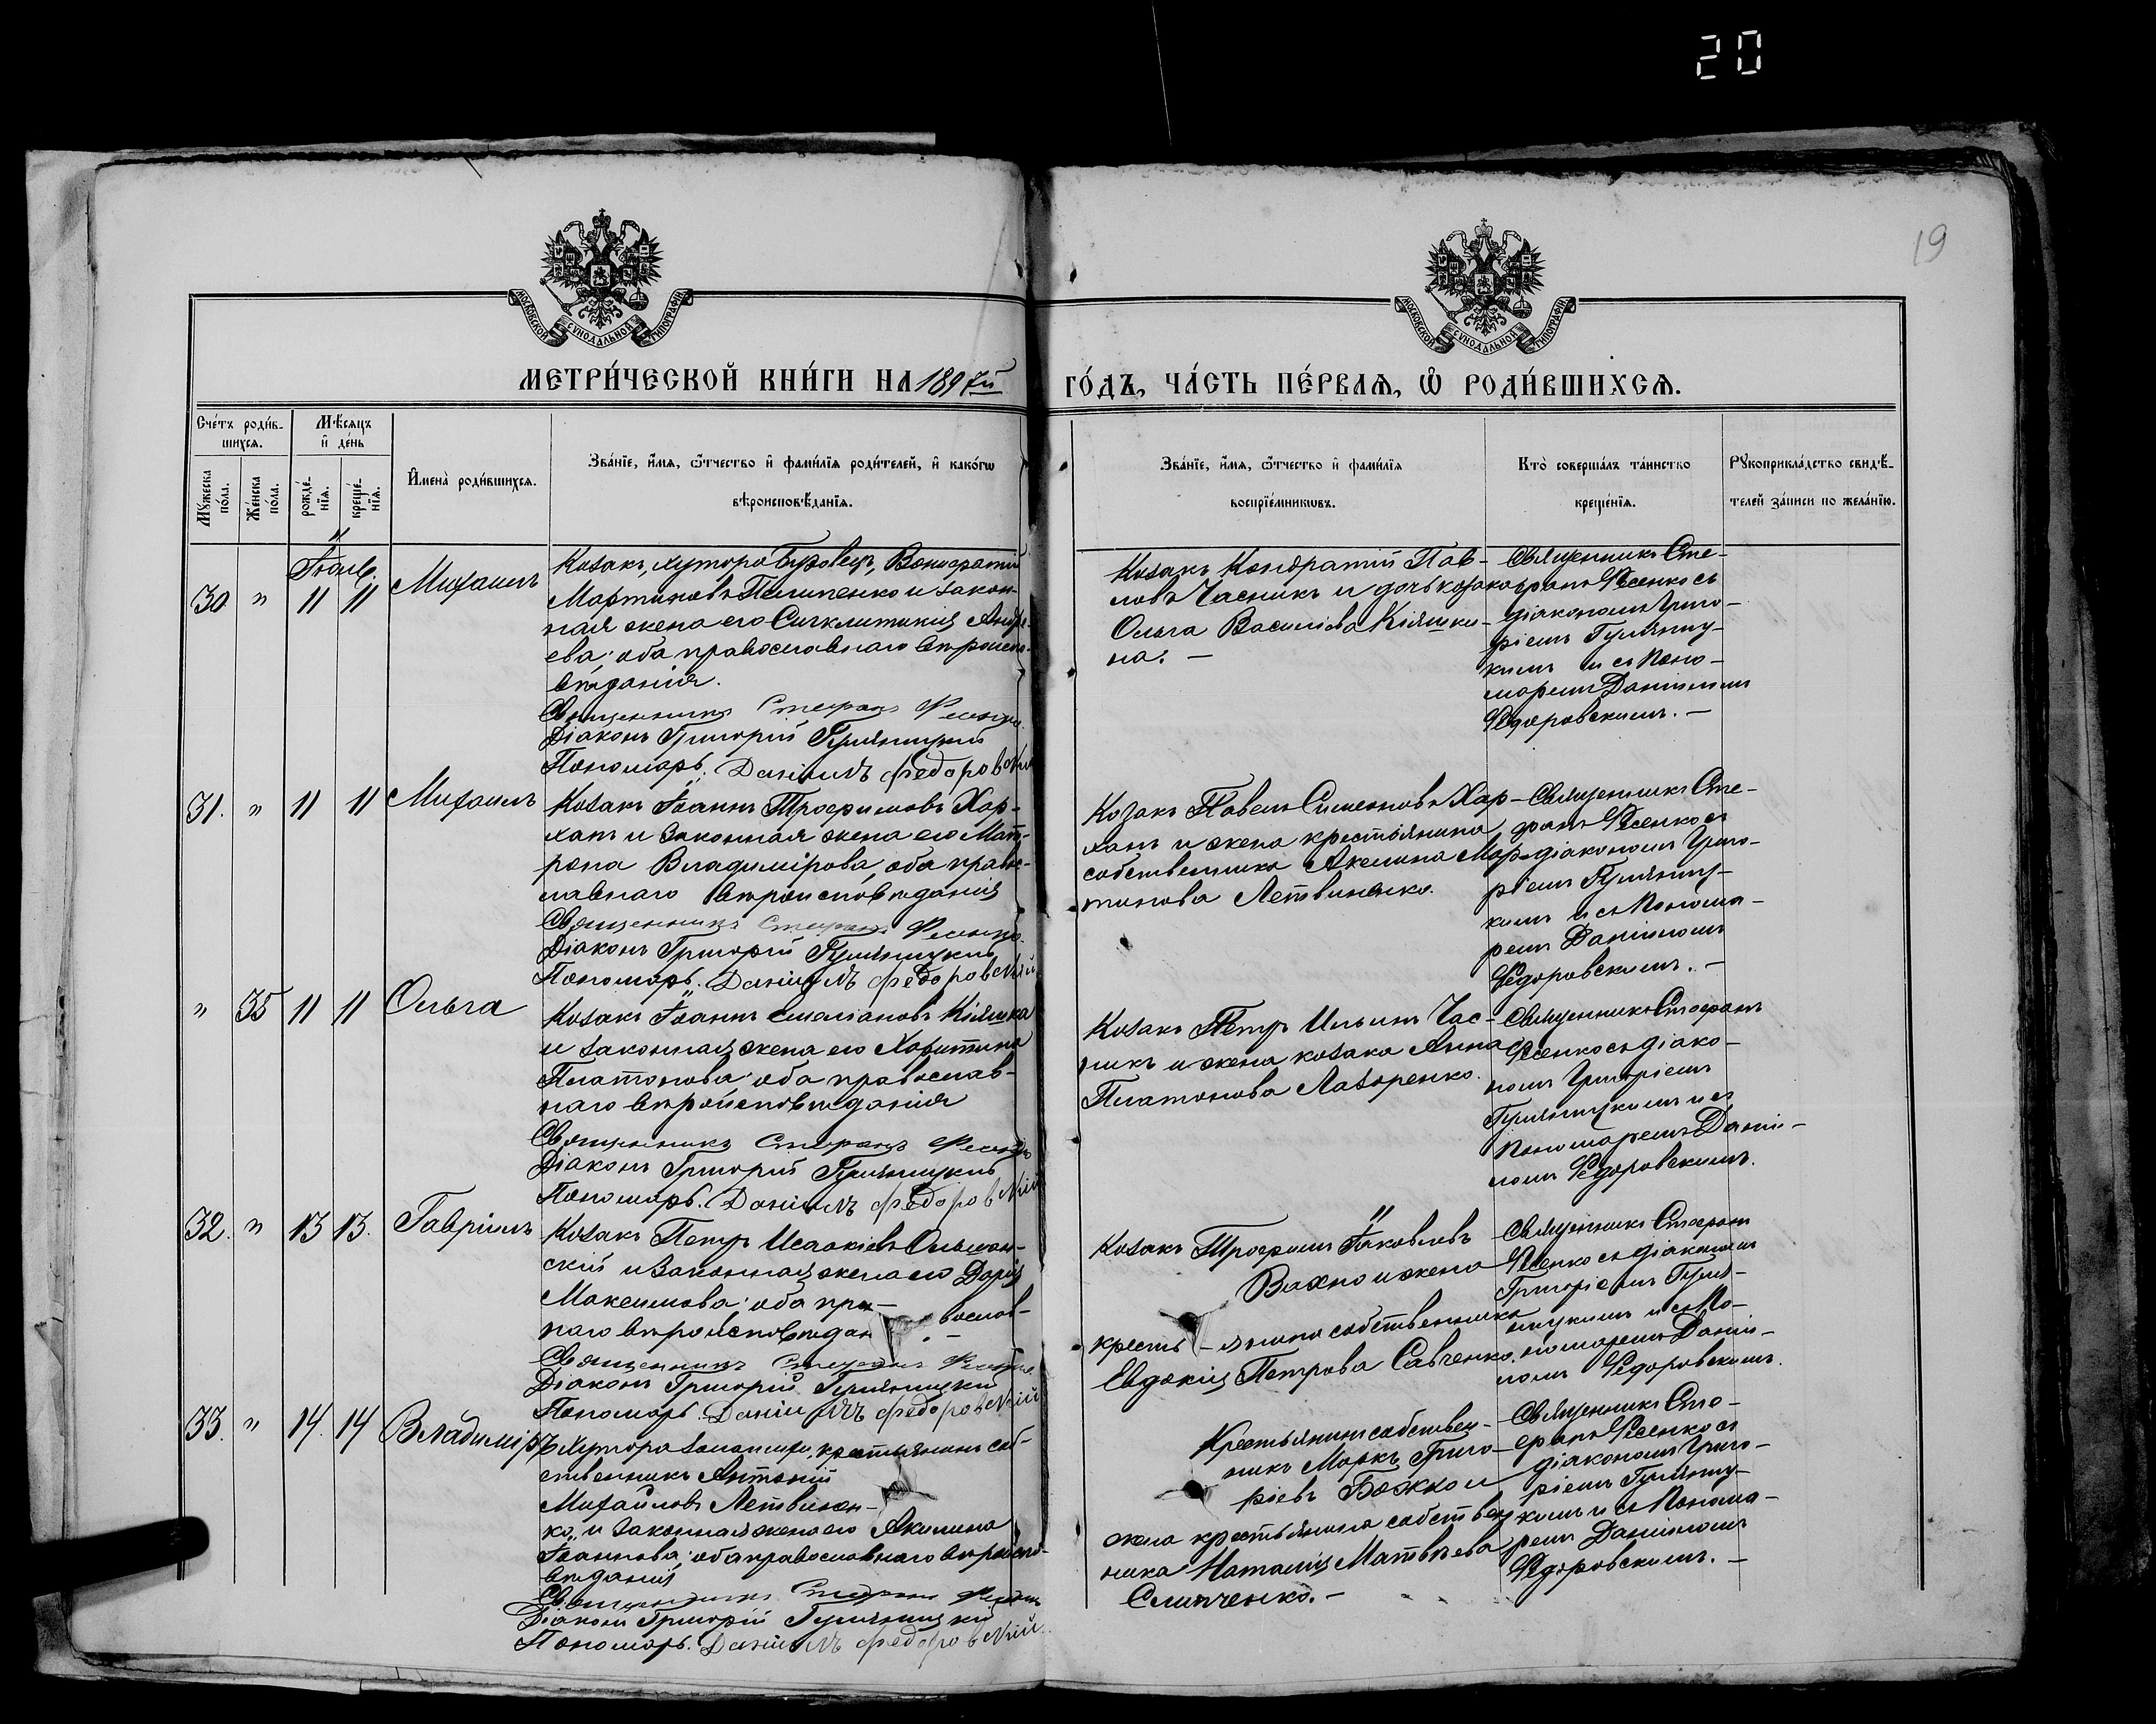 20
19
МОСКОВСКОЙ СУНОДАЛЬНОЙ ТИПОГРАФІИ
МОСКОВСКОЙ СУНОДАЛЬНОЙ ТИПОГРАФІИ
МЕТРИ́ЧЕСКОЙ КНИ́ГИ НА 1897й
ГО́ДЪ, ЧА́СТЬ ПЕ́РВАѦ, Ѡ҆ РОДИ́ВШИХСѦ.
Сче́тъ роди́в-
шихсѧ.
Мѣ́сѧцъ
и҆ де́нь
Мꙋ́жеска
по́ла.
Же́нска
по́ла.
рожде́-
нїѧ.
креще́-
нїѧ.
И҆мена̀ роди́вшихсѧ.
Зва́нїе, и҆́мѧ, ѻ҆́тчество и҆ фами́лїѧ роди́телей, и҆ како́гѡ
вѣроисповѣ́данїѧ.
Зва́нїе, и҆́мѧ, ѻ҆́тчество и҆ фами́лїѧ
воспрїе́мникѡвъ.
Кто̀ соверша́лъ та́инство
креще́нїѧ.
Рꙋкоприкла́дство свидѣ́-
телей за́писи по жела́нїю.
30 " 11 11 Михаилъ
Козакъ, хутора
Мартиновъ Пилипенко и закон-
ная жена его Сигклитикія Андре-
ева; оба православнаго вѣроиспо-
вѣданія.
Священникъ Стефанъ Фесенко
Діаконъ Григорій Гумяницкій
Пономарь. Даніилъ Федоровскій
Козакъ Кондратій Пав-
ловъ Часникъ и дочь козака
Ольга Василіева Кіяшки-
на. —
Священникъ Сте-
фанъ Фесенко съ
діакономъ Григо-
ріемъ Гумяниц-
кимъ и съ Поно-
маремъ Даніиломъ
Федоровскимъ. —
31. " 11 11 Михаилъ
Козакъ Іоаннъ Трофимовъ Хар-
ханъ и законная жена его Мат-
рона Владимірова, оба правос-
лавнаго вѣроисповѣданія
Священникъ Стефанъ Фесенко
Діаконъ Григорій Гумяницкій
Пономарь. Даніилъ Федоровскій
Козакъ Павелъ Симеоновъ Хар-
ханъ и жена крестьянина
собственника Акилина Мар-
тинова Летвиненко.
Священникъ Сте-
фанъ Фесенко съ
діакономъ Григо-
ріемъ Гумяниц-
кимъ и съ Понома-
ремъ Даніиломъ
Федоровскимъ. —
" 35 11 11 Ольга
Козакъ Іоаннъ Емеліановъ Кіяшка
и законная жена его Харитина
Платонова; оба православ-
наго вѣроисповѣданія
Священникъ Стефанъ Фесенко
Діаконъ Григорій Гумяницкій
Пономарь. Даніилъ Федоровскій
Козакъ Петръ Ильинъ Час-
никъ и жена козака Анна
Платонова Лазоренко.
Священникъ Стефанъ
Фесенко съ діако-
номъ Григоріемъ
Гумяницкимъ и съ
Пономаремъ Дании-
ломъ Федоровскимъ.
32. " 13 13. Гавріилъ
Козакъ Петръ Исаакіевъ Ольшан-
скій и законная жена его Дарія
Максимова; оба пра- вослав-
наго вѣроисповѣдан
Священникъ Стефанъ Фесенко
Діаконъ Григорій Гумяницкій
Пономарь. Даніилъ Федоровскій
Козакъ Трофимъ Іаковлевъ
Вахно и жена
кресть- янина собственника
Евдокія Петрова Савченко.
Священникъ Стефанъ
Фесенко съ діакономъ
Григоріемъ Гумя-
ницкимъ и съ По-
номаремъ Даніи-
ломъ Федоровскимъ.
33. " 14. 14 Владиміръ
хутора крестьянинъ соб-
ственникъ Антоній
Михайловъ Летвинен-
ко, и законная жена его Акилина
Іоаннова; оба православнаго вѣроиспо-
вѣданія
Священникъ Стефанъ Фесенко
Діаконъ Григорій Гумяницкій
Пономарь. Даніилъ Федоровскій
Крестьянинъ собствен-
никъ Маркъ Григо-
ріевъ Божко и
жена крестьянина собствен-
ника Наталія Матвѣева
Слипченко. —
Священникъ Сте-
фанъ Фесенко съ
діакономъ Григо-
ріемъ Гумяниц-
кимъ и съ Понома-
ремъ Даніиломъ
Федоровскимъ. —